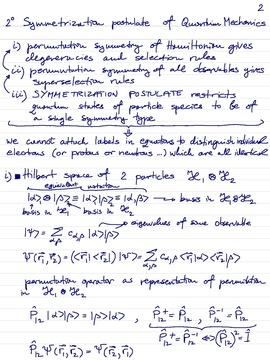 2
2° Symmetrization postulate of Quantum Mechanics
i) permutation symmetry of Hamiltonian gives
degeneracies and selection rules
ii) permutation symmetry of all observables gives
superselection rules
iii) SYMMETRIZATION POSTULATE restricts
quantum states of particle species to be of
a single symmetry type
we cannot attach labels in equations to distinguish individual
electrons (or protons or neutrons ...) which are all identical
i) ■ Hilbert space of 2 particles ℋ₁ ⊗ ℋ₂
equivalent notation
|α⟩₁ ⊗ |β⟩₂ ≡ |α⟩₁ |β⟩₂ ≡ |α⟩|β⟩ — basis in ℋ₁⊗ℋ₂
basis in ℋ₁ basis in ℋ₂
eigenvalues of some observable
|Ψ⟩ = Σ_{α,β} c_{α,β} |α⟩|β⟩
Ψ(r⃗₁, r⃗₂) = (⟨r⃗₁|⟨r⃗₂|)|Ψ⟩ = Σ_{α,β} c_{α,β} ⟨r⃗₁|α⟩⟨r⃗₂|β⟩
permutation operator as representation of permutation
in ℋ₁ ⊗ ℋ₂
P̂₁₂ |α⟩|β⟩ = |β⟩|α⟩ , P̂₁₂⁺ = P̂₁₂ , P̂₁₂⁻¹ = P̂₁₂
P̂₁₂⁺ = P̂₁₂⁻¹ ⇔ (P̂₁₂)² = Î
P̂₁₂ Ψ(r⃗₁, r⃗₂) = Ψ(r⃗₂, r⃗₁)